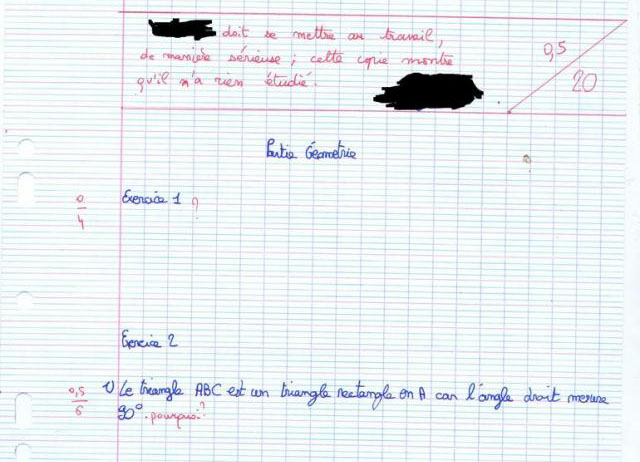 doit se mettre au travail,
de manière sérieuse ; cette copie montre
qu'il n'a rien étudié.
0,5
20
Partie Géometrie
0
4
Exercice 1 ?
Exercice 2
0,5
6
1) Le triangle ABC est un triangle rectangle en A car l'angle droit mesure
90°. pourquoi?